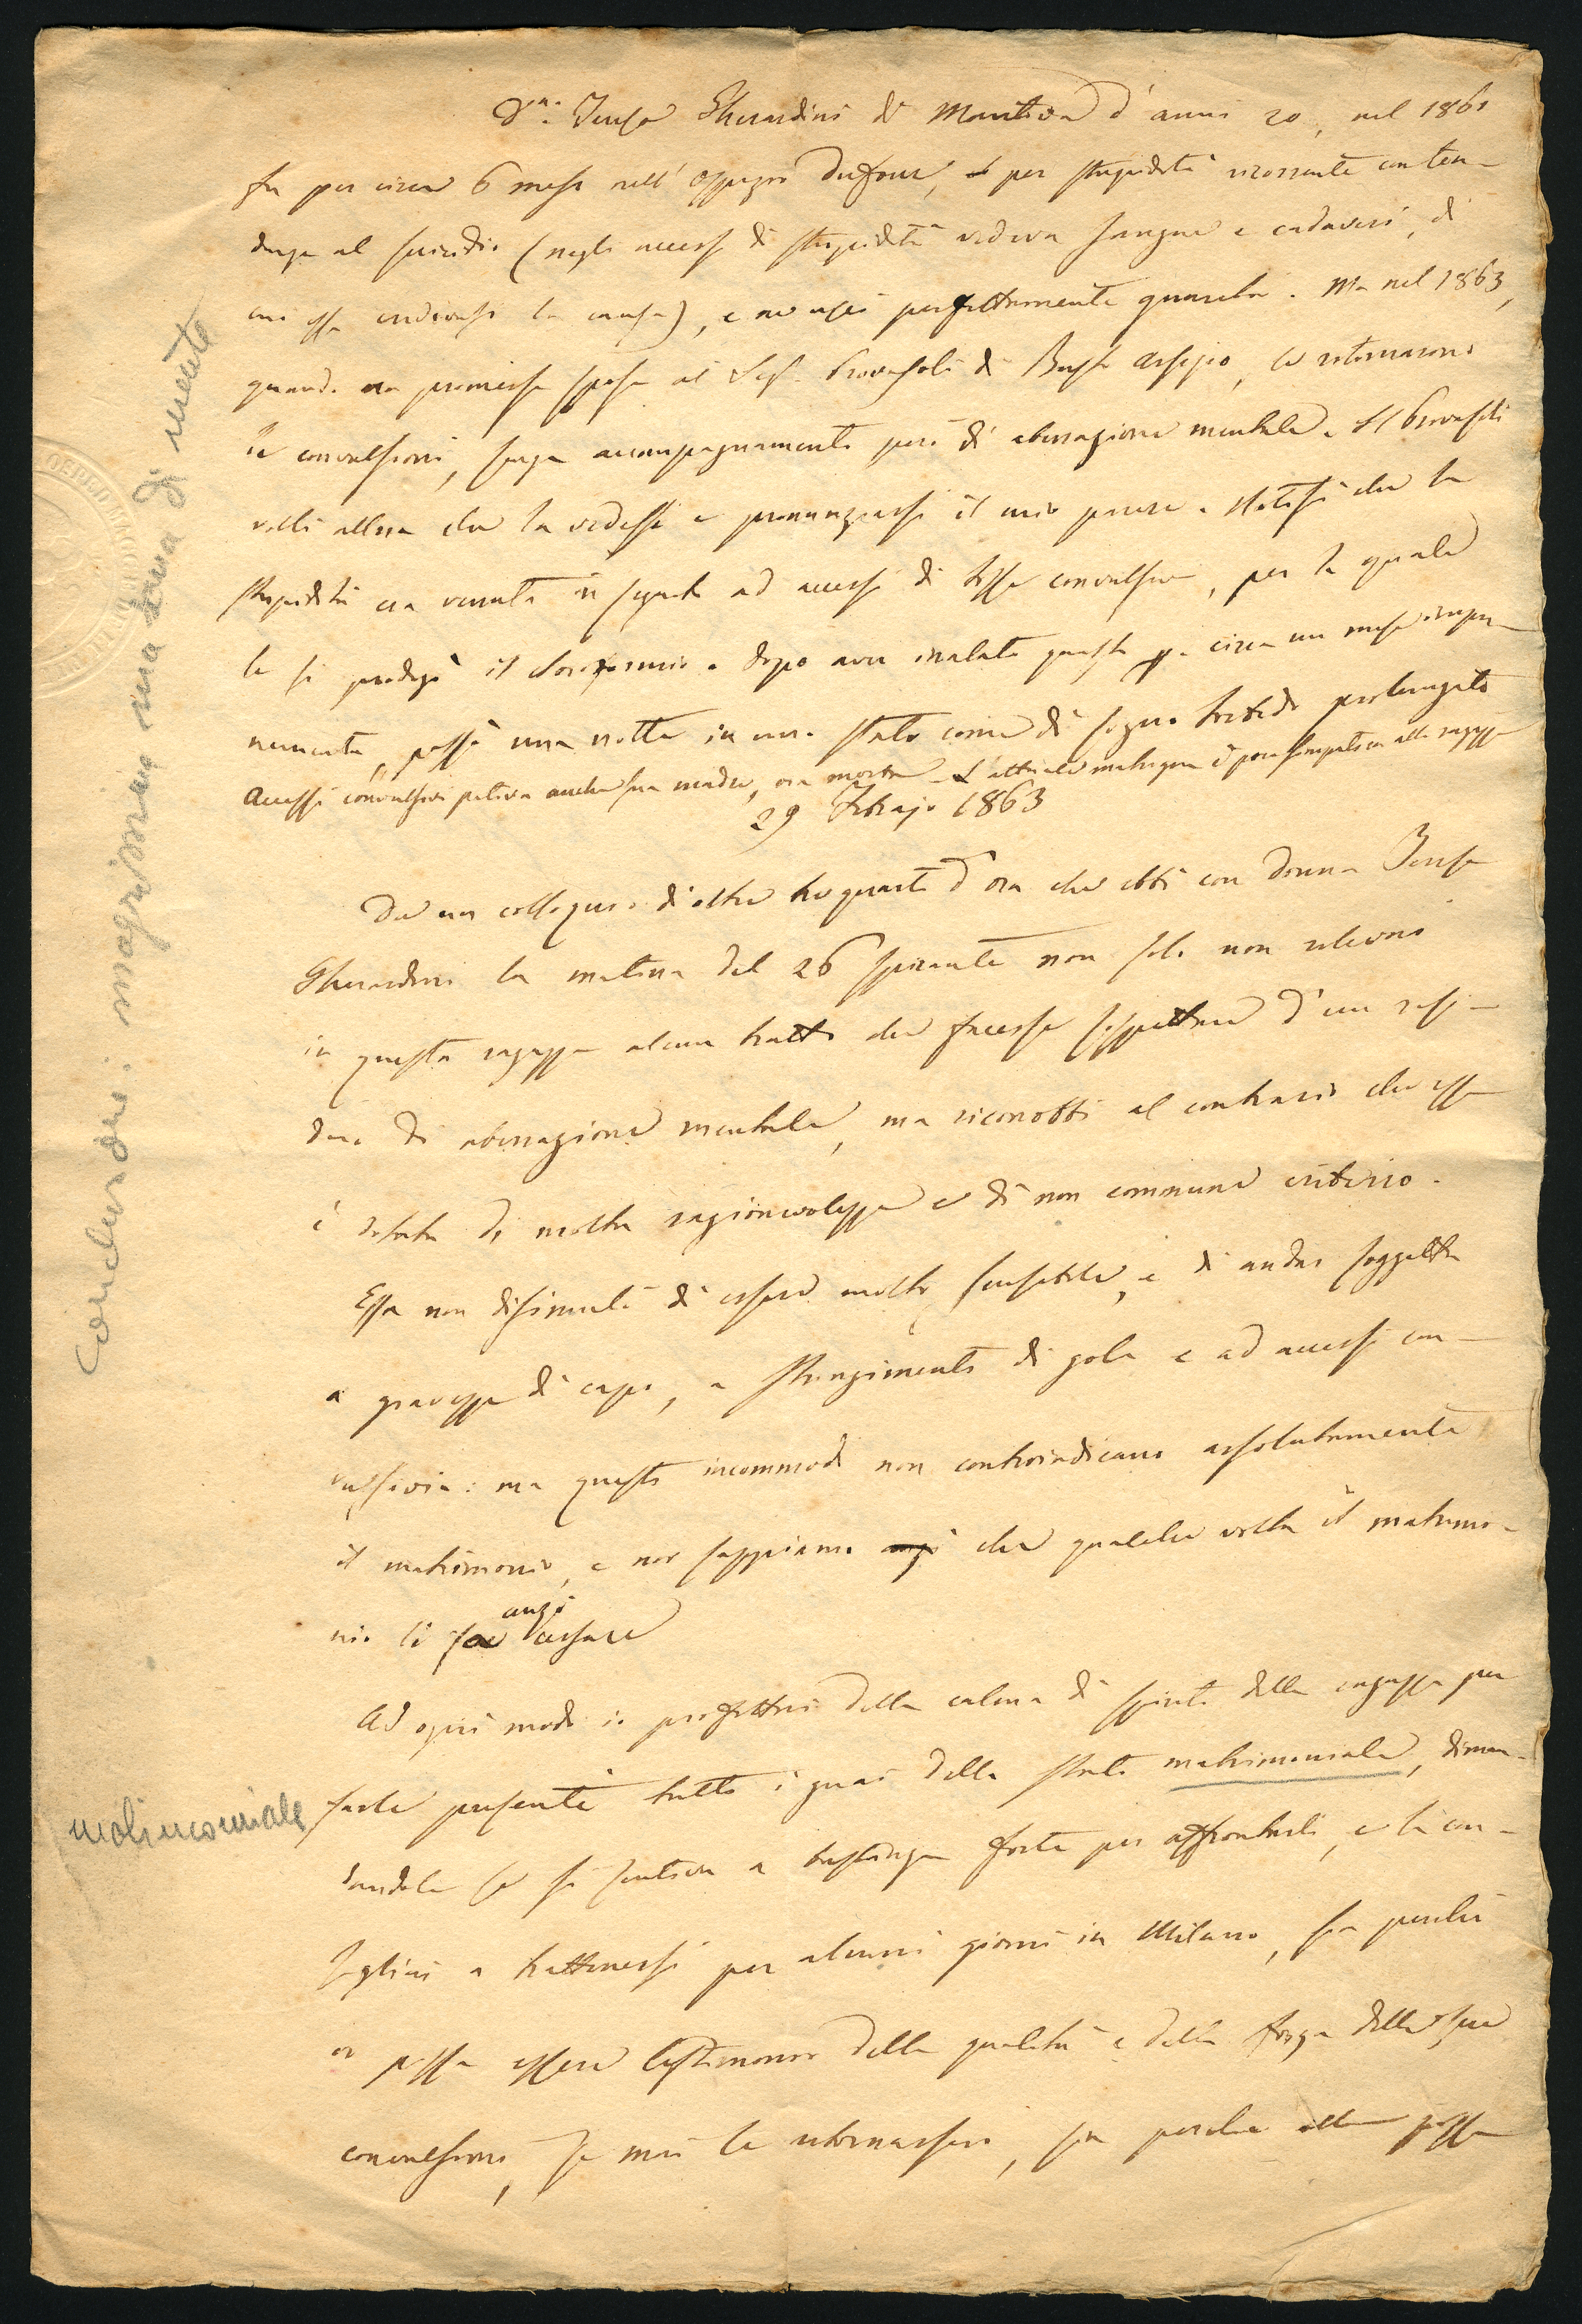 D.ª Teresa Gherardini di Mantova d'anni 20, nel 1861
fu per circa 6 mesi nell' Ospizio Dufour, per stupidità ricorrente con ten-
denza al suicidio (negli accessi di stupidità vedeva sangue e cadaveri, di
cui essa credevasi la causa), e ne uscì perfettamente guarita. Ma nel 1863,
quando era promessa sposa al Sig. Provasoli di Busto Arsizio, le ritornarono
le convulsioni, senza accompagnamento però di aberrazione mentale. Il Provasoli
volle allora che la vedessi e pronunziassi il mio parere. Notisi che la
stupidità era venuta in seguito ad accessi di tosse convulsiva, per la quale
le si prodigò il cloroformio. Dopo aver inalato questo per circa un mese impu-
nemente, passò una notte in uno stato come di sogno torbido prolungato
Accessi convulsivi pativa anche sua madre, ora morta. L'attuale matrigna è poco simpatica alla ragazza
29 Febrajo 1863
Da un colloquio di oltre tre quarti d'ora che ebbi con Donna Teresa
Gherardini la mattina del 26 spirante non solo non rilevai
in questa ragazza alcun tratto che facesse sospettare d'un resi-
duo di aberrazione mentale, ma riconobbi al contrario che essa
è dotata di molta ragionevolezza e di non comune criterio.
Essa non dissimulò di essere molto sensibile, e di andar soggetta
a gravezza di capo, a stringimento di gola e ad accessi con-
vulsivi: ma questi incommodi non controindicano assolutamente
il matrimonio, e noi sappiamo anzi che qualche volta il matrimo-
nio li fa anzi cessare
Ad ogni modo io profittai della calma di spirito della ragazza per
farle presente tutti i guai dello stato matrimoniale, diman-
dandole se si sentiva a bastanza forte per affrontarli, e la con-
sigliai a trattenersi per alcuni giorni in Milano, sia perchè
io possa essere testimonio della qualità e della forza delle sue
convulsioni, se mai le ritornassero, sia perchè ella possa
Concludere: magrissimo una di mente
molimoniale